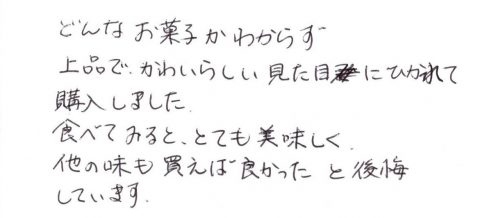 どんなお菓子かわからず
上品で、かわいらしい見た目にひかれて
購入しました.
食べてみると、とても美味しく、
他の味も買えば良かったと後悔
しています.